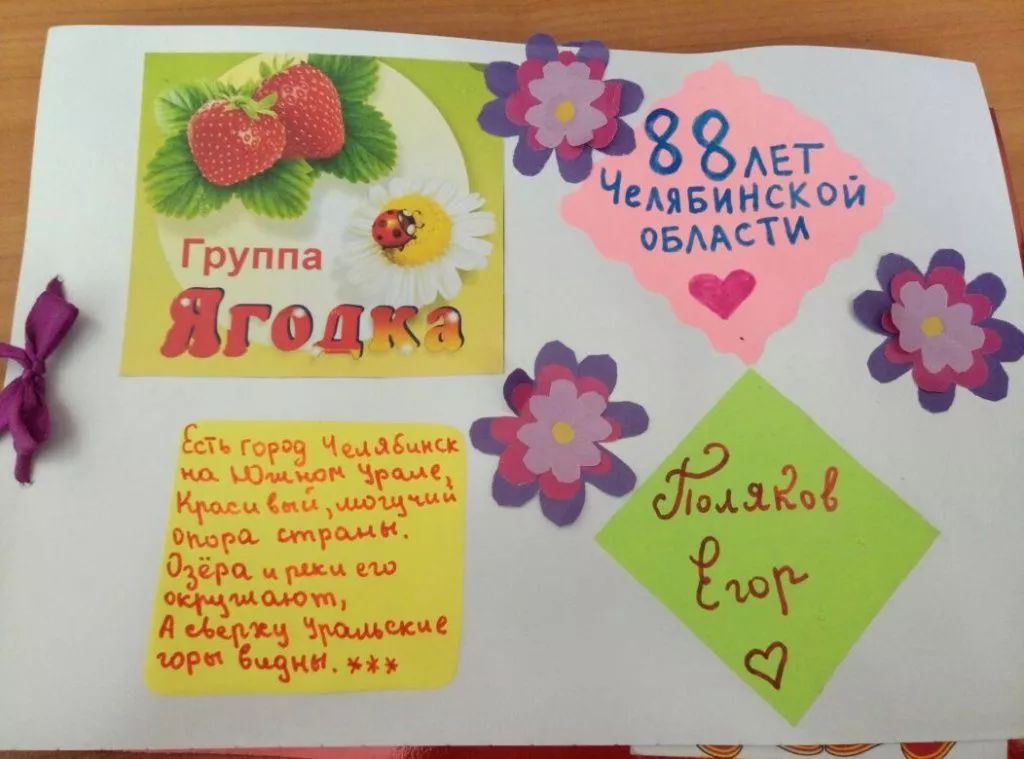 Группа
Ягодка
88 ЛЕТ
ЧЕЛЯБИНСКОЙ
ОБЛАСТИ
Есть город Челябинск
на Южном Урале,
Красивый, могучий
опора страны.
Озёра и реки его
окружают,
А сверху Уральские
горы видны. ***
Поляков
Егор